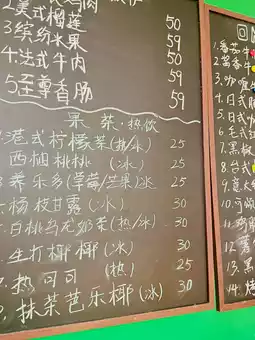 2美式榴莲 50
3缤纷水果 59
4.法式牛肉 50
5至尊香肠 59
59
果茶·热饮
港式柠檬茶(热/冰) 25
西柚桃桃 (冰) 25
养乐多(草莓/芒果)冰 25
杨枝甘露(冰) 30
白桃乌龙奶茶(热/冰) 25
生打椰椰(冰) 30
热可可 (热) 25
9.抹茶芭乐椰(冰) 30
1.番茄
2.酱香牛
3.咖喱
4.日式
5.日式
6.毛式
7.黑椒
8.台式
9.意大
12.
13.黑
14.烤